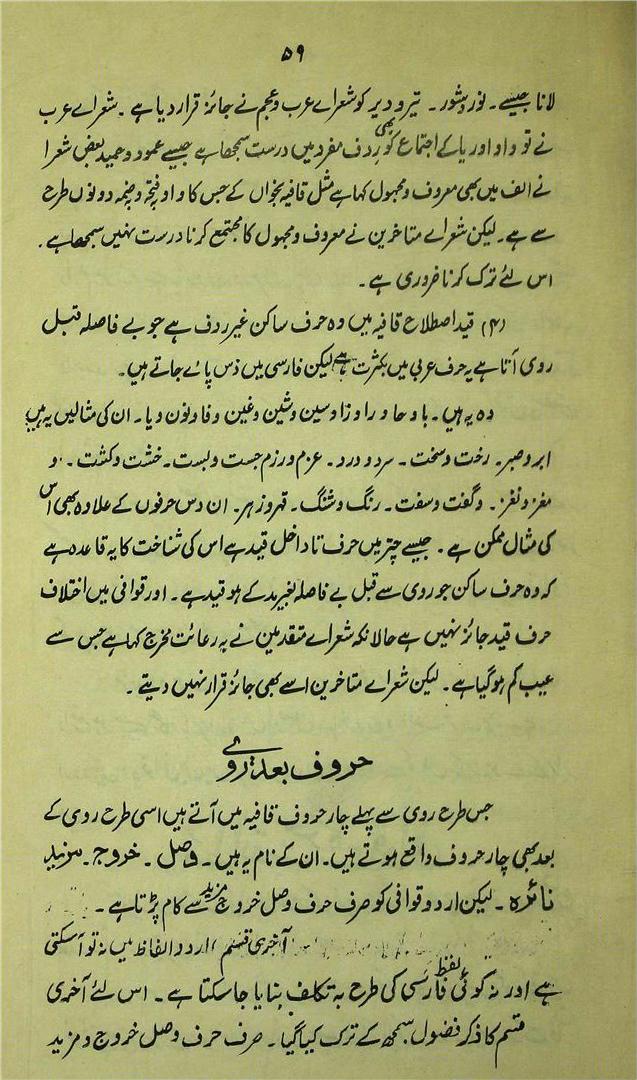 ۵۹
لانا جیسے۔ نور و شور۔ تیر و دیر کو شعراے عرب و عجم نے جائز قرار دیا ہے۔ شعراے عرب
نے تو واو اور یا کے اجتماع کو بھی ردف مفرد میں درست سمجھا ہے جیسے عمود و حمید بعض شعرا
نے الف میں بھی معروف و مجہول کہا ہے مثل قافیہ بخواں کے جس کا واو فتحہ و ضمہ دونوں طرح
سے ہے۔ لیکن شعراے متاخرین نے معروف و مجہول کا مجتمع کرنا درست نہیں سمجھا ہے۔
اس لئے ترک کرنا ضروری ہے۔
(۴) قید اصطلاح قافیہ میں وہ حرف ساکن غیر ردف ہے جو بے فاصلہ قبل
روی آتا ہے یہ حرف عربی میں بکثرت ہے لیکن فارسی میں دس پاے جاتے ہیں۔
وہ یہ ہیں۔ با و خا و را و زا و سین و شین و غین و فا و نون و یا۔ ان کی مثالیں یہ ہیں
ابر و صبر۔ رخت و سخت۔ سرد و درد۔ عزم و رزم جست و بست۔ خشت و کشت۔ و
مغز و نغز۔ و گفت و سفت۔ رنگ و شنگ۔ قہر و زہر۔ ان دس حرفوں کے علاوہ بھی اس
کی مثال ممکن ہے۔ جیسے چتر میں حرف تا داخل قید ہے اس کی شناخت کا یہ قاعدہ ہے
کہ وہ حرف ساکن جو روی سے قبل بے فاصلہ بغیر مد کے ہو قید ہے۔ اور قوافی میں اختلاف
حرف قید جائز نہیں ہے حالانکہ شعراے متقدمین نے بہ رعائت مخرج کہا ہے جس سے
عیب کم ہو گیا ہے۔ لیکن شعراے متاخرین اسے بھی جائز قرار نہیں دیتے۔
حروف بعد روے
جس طرح روی سے پہلے چار حروف قافیہ میں آتے ہیں اسی طرح روی کے
بعد بھی چار حروف واقع ہوتے ہیں۔ ان کے نام یہ ہیں۔ وصل۔ خروج۔ مزید
نائرہ۔ لیکن اردو قوافی کو صرف حرف وصل خروج مزید سے کام پڑتا ہے۔
آخری قسم اردو الفاظ میں نہ تو آسکتی
ہے اور نہ کوئی لفظ فارسی کی طرح بہ تکلف بنایا جا سکتا ہے۔ اس لئے آخری
قسم کا ذکر فضول سمجھ کے ترک کیا گیا۔ صرف حرف وصل خروج و مزید